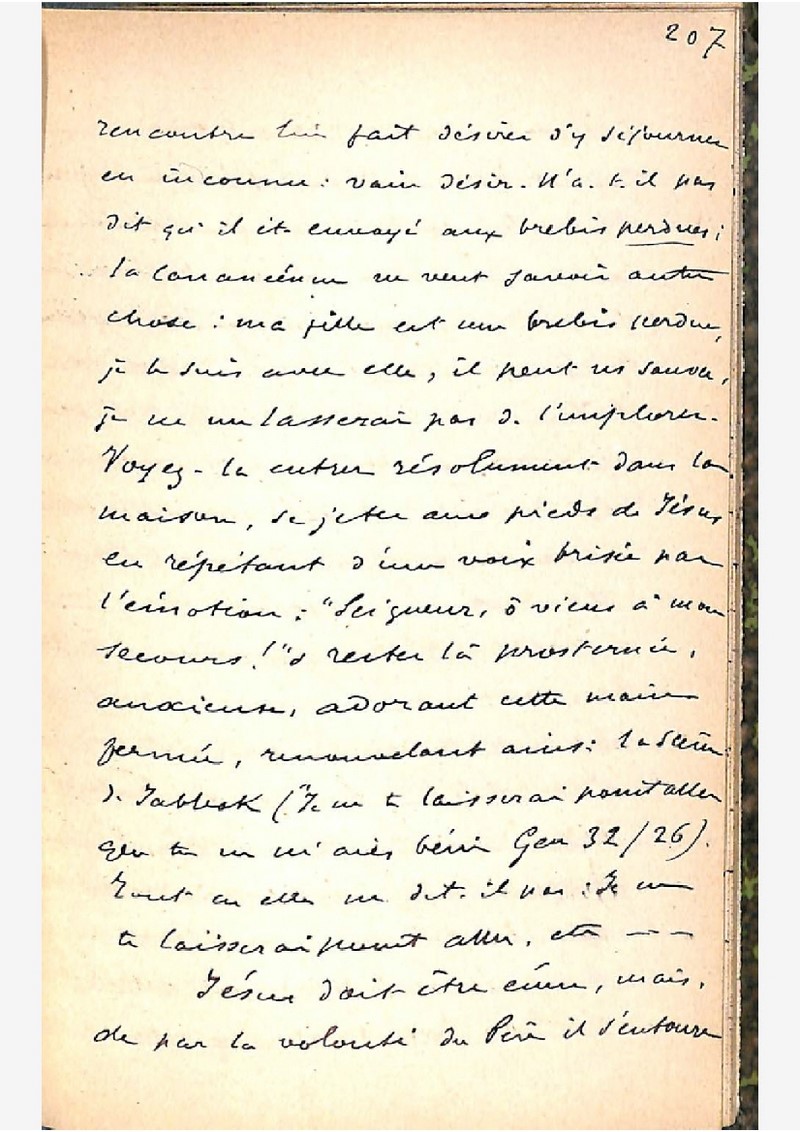 207
rencontre lui fait désirer d'y séjourner
en inconnu : vain désir. N'a-t-il pas
dit qu'il ets envoyé aux brebis perdues ;
la Cananéenne ne veut savoir autre
chose : ma fille est une brebis perdue,
je le suis avec elle, il peut ns sauver,
je ne me lasserai pas de l'implorer.
Voyez-la entrer résolument dans la
maison, se jeter aux pieds de Jésus
en répétant d'une voix brisée par
l'émotion : "Seigneur, ô viens à mon
secours !" & rester là prosternée,
anxieuse, adorant cette main
fermée, renouvelant ainsi la scène
de Jabbok ("Je ne te laisserai point aller
que tu ne m'aies béni Gen 32/26).
Tout en elle ne dit-il pas : Je ne
te laisserai point aller, etc ---
Jésus doit être ému, mais,
de par la volonté du Père il s'entoure